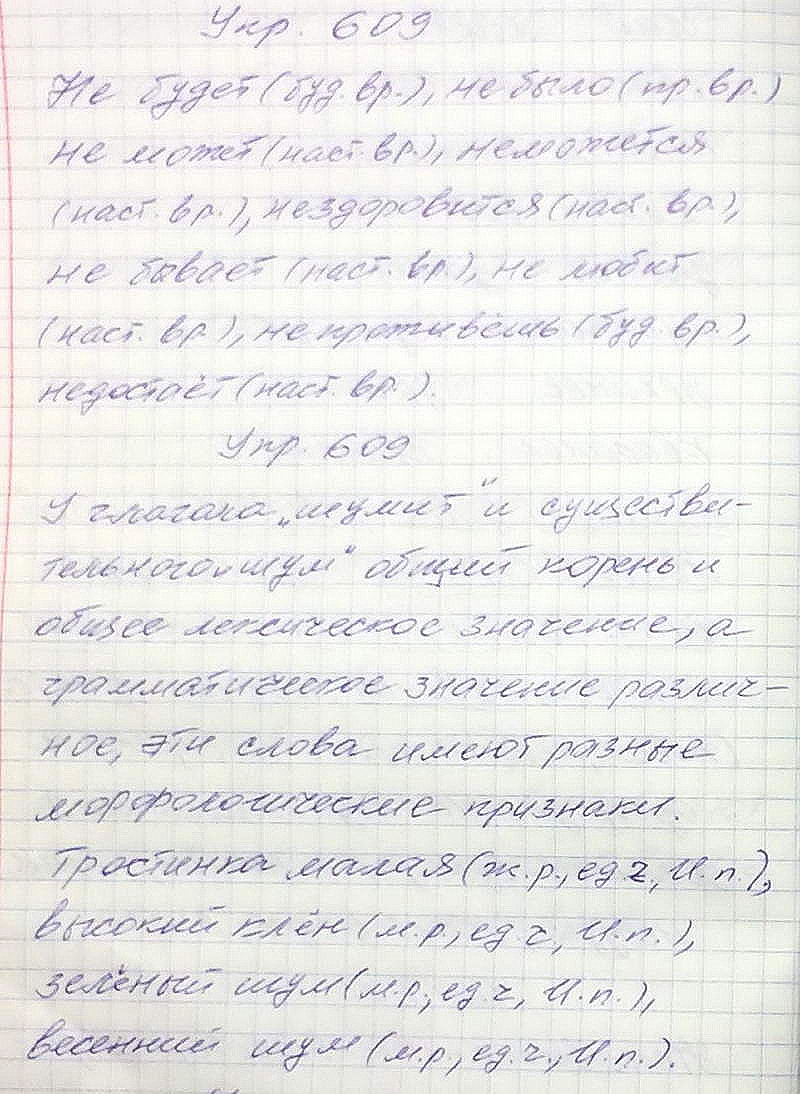 Укр. 609
Не будет (буд. вр.), не было (пр. вр.)
не может (наст. вр.), неможется
(наст. вр.), нездоровится (наст. вр.),
не бывает (наст. вр.), не любит
(наст. вр.), не проживёшь (буд. вр.),
недостаёт (наст. вр.).
Упр. 609
У глагола „шумит" и существи-
тельного „шум" общий корень и
общее лексическое значение, а
грамматическое значение различ-
ное, эти слова имеют разные
морфологические признаки.
Тростинка малая (ж.р., ед.ч., И.п.),
высокий клён (м.р., ед.ч., И.п.),
зелёный шум (м.р., ед.ч, И.п.),
весенний шум (м.р., ед.ч., И.п.).